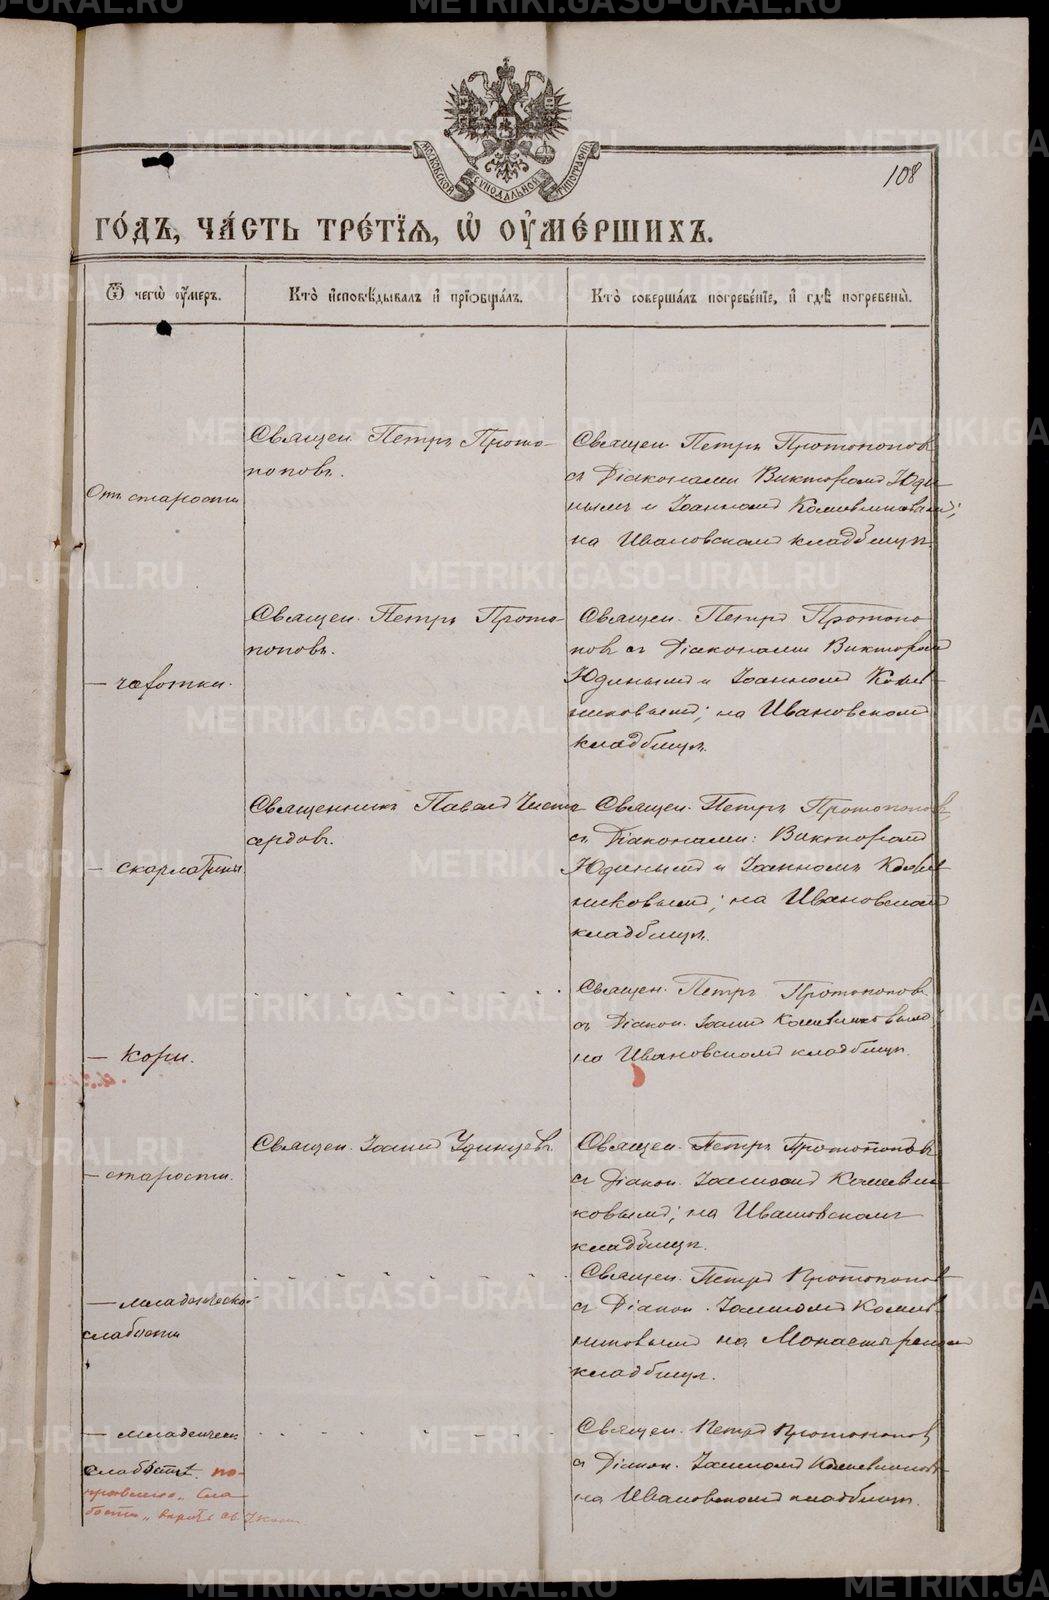 108
МОСКОВСКОЙ СѴНОДАЛЬНОЙ ТИПОГРАФІИ
ГО́ДЪ, ЧА́СТЬ ТРЕ́ТІЯ, Ѡ҆ ОУ҆МЕ́РШИХЪ.
Ѿ чегѡ̀ оу҆́меръ.
Кто̀ и҆сповѣ́дывалъ и҆ прїѡбща́лъ.
Кто̀ соверша́лъ погребе́нїе, и҆ гдѣ̀ погребены̀.
Отъ старости
Священ. Петръ Прото-
поповъ.
Священ. Петръ Протопопов
съ Діаконами Викторомъ Юди-
нымъ и Іоанномъ Кошевниковым;
на Ивановскомъ кладбищѣ.
— чахотки.
Священ. Петръ Прото-
поповъ.
Священ. Петръ Протопо-
повъ съ Діаконами Викторомъ
Юдинымъ и Іоанномъ Кошев-
никовымъ; на Ивановскомъ
кладбищѣ.
— скарлатины
Священникъ Павелъ Чисто-
сердовъ.
Священ. Петръ Протопоповъ
съ Діаконами: Викторомъ
Юдинымъ и Іоанномъ Кошев-
никовымъ; на Ивановскомъ
кладбищѣ.
— кори.
Священ. Петръ Протопоповъ
съ Діакон. Іоанн Кошевниковымъ
на Ивановскомъ кладбищѣ.
— старости.
Священ. Іоаннъ Удинцевъ.
Священ. Петръ Протопоповъ
съ Діакон. Іоанномъ Кошевни-
ковымъ; на Ивановскомъ
кладбищѣ.
— младенческой
слабости
Священ. Петръ Протопопов
съ Діакон. Іоанномъ Кошев-
никовымъ на Монастырском
кладбищѣ.
— младенческ.
слабости. по-
правлено „сла-
бости„ вѣрно
Священ. Петръ Протопопов
съ Діакон. Іоанномъ Кошевников
на Ивановскомъ кладбищѣ.
METRIKI.GASO-URAL.RU